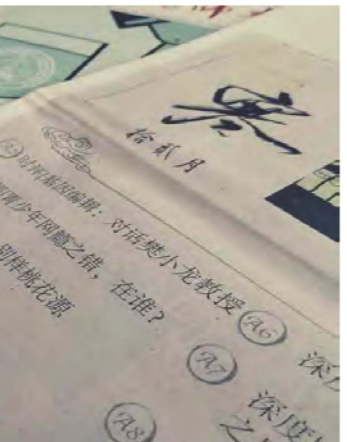 拾贰月
基因编辑：对话樊小龙教授
青少年网瘾之错，在谁？
别样桃花源
A6 深
A7 深度
A8 之